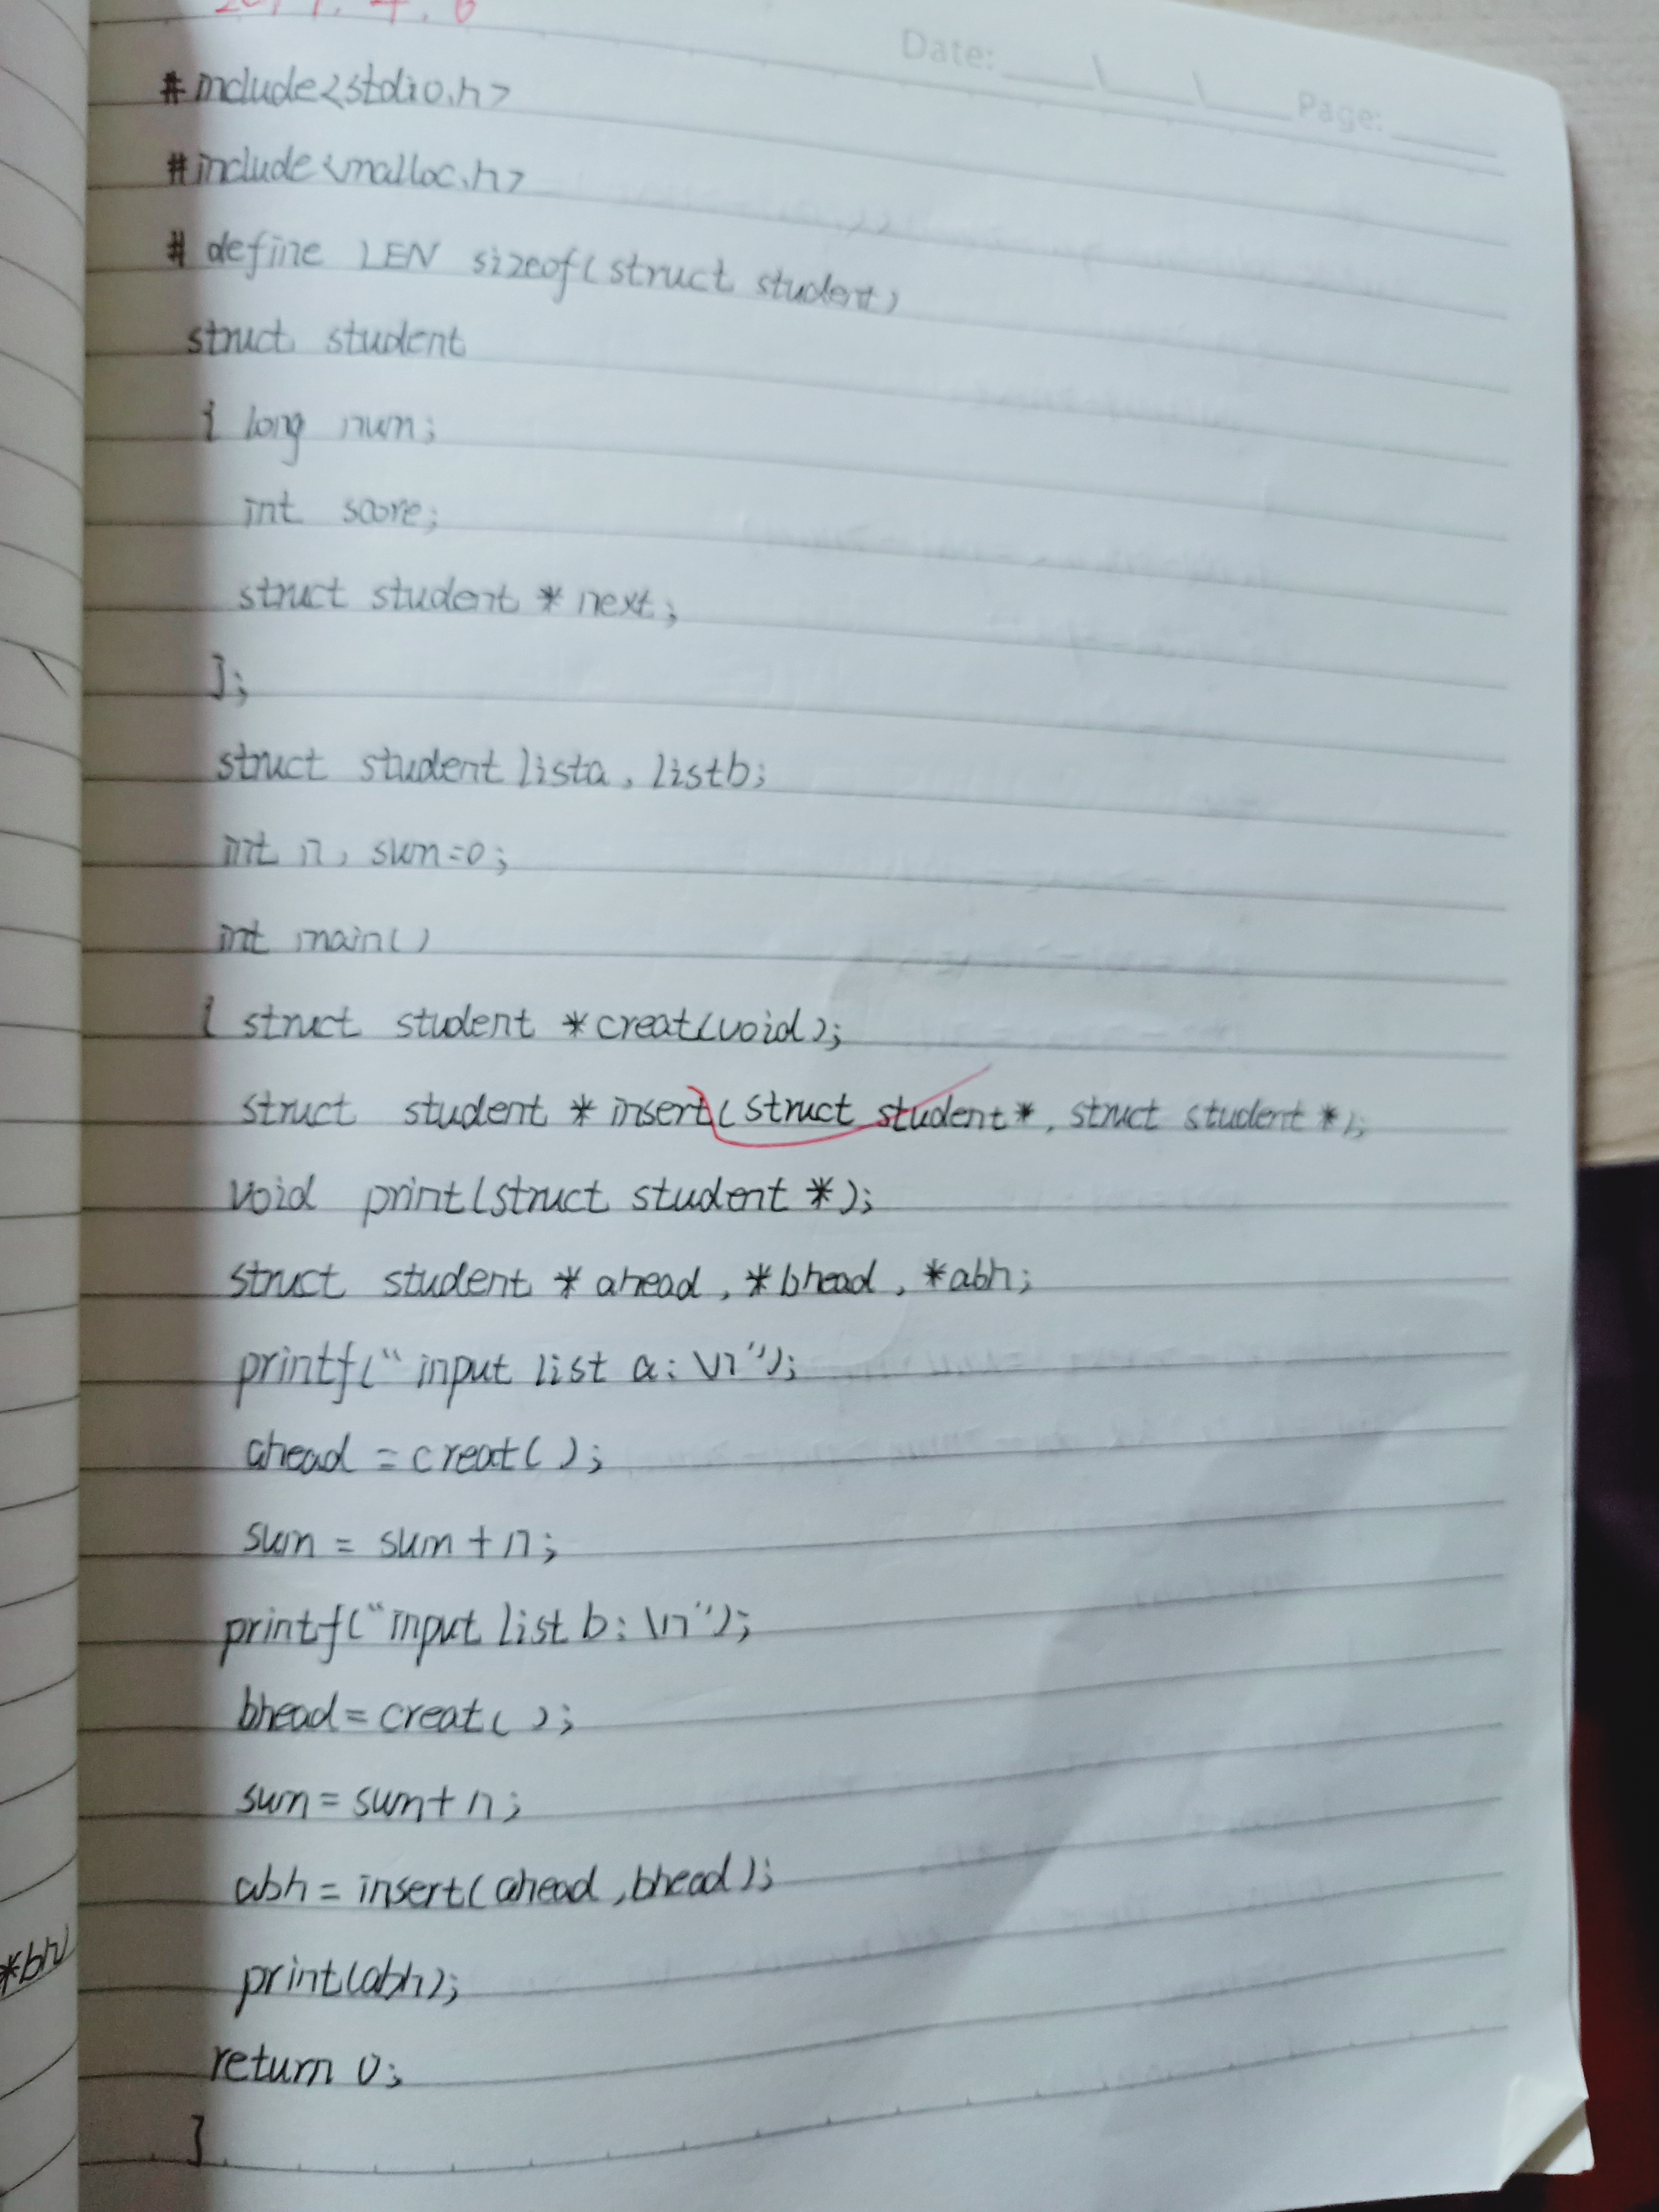 Date: ____\____\____ Page: ____
#include<stdio.h>
#include<malloc.h>
# define LEN sizeof(struct student)
struct student
{ long num;
int score;
struct student * next;
};
struct student lista, listb;
int n, sum=0;
int main()
{ struct student *creat(void);
struct student * insert(struct student*, struct student *);
void print(struct student *);
struct student * ahead, *bhead, *abh;
printf("input list a: \n");
ahead = creat( );
sum = sum + n;
printf("input list b: \n");
bhead = creat( );
sum = sum + n;
abh = insert(ahead, bhead);
*bh)
print(abh);
return 0;
}